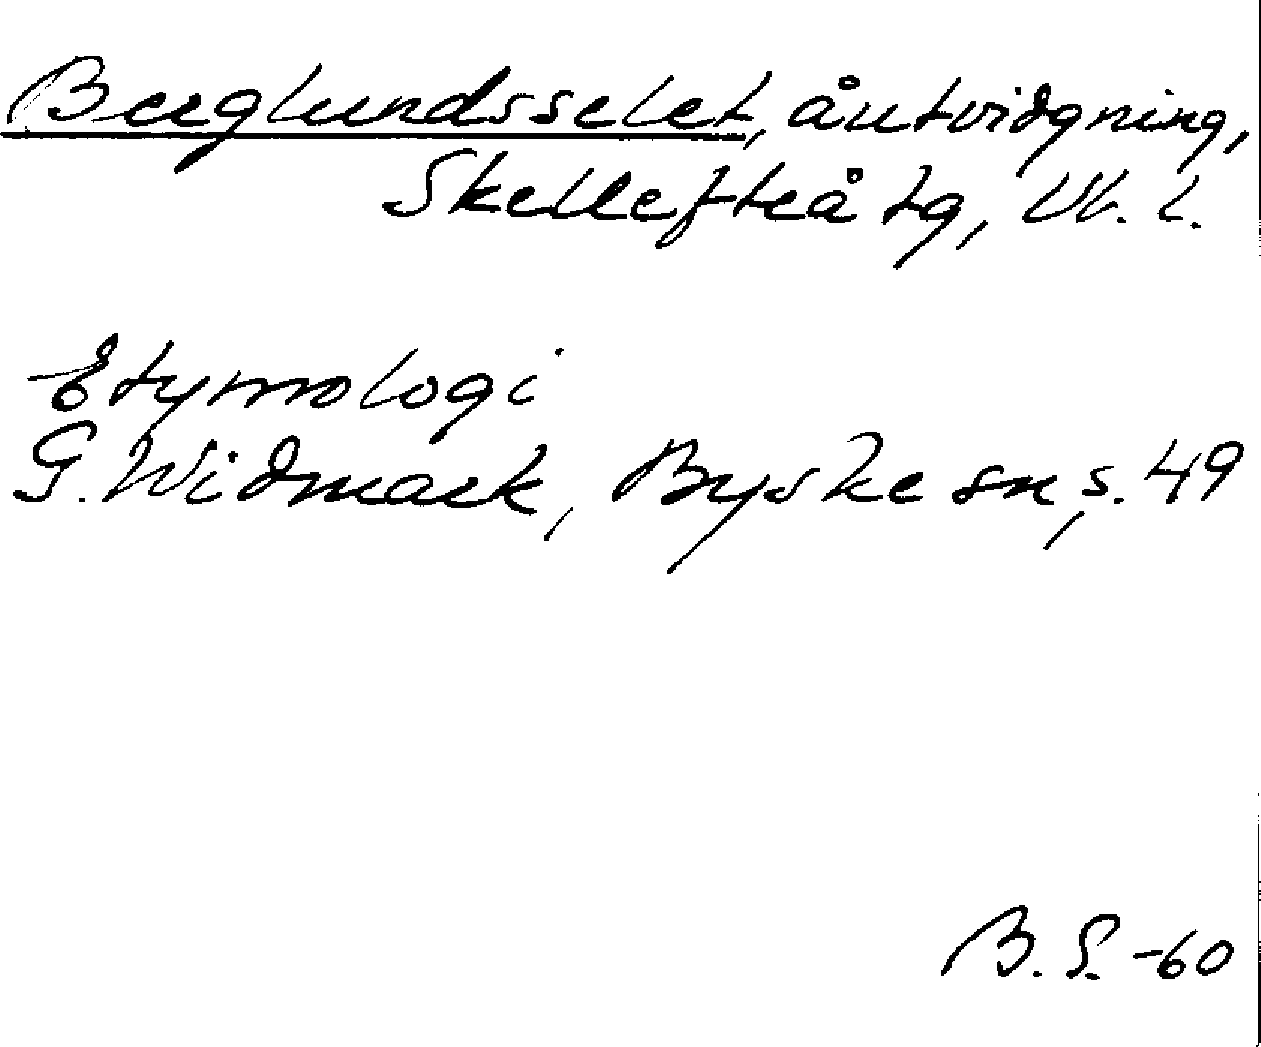 Berglundsselet, åutvidgning,
Skellefteå tg, Vb. l.
Etymologi
G. Widmark, Byske sn, s. 49
B. S. -60